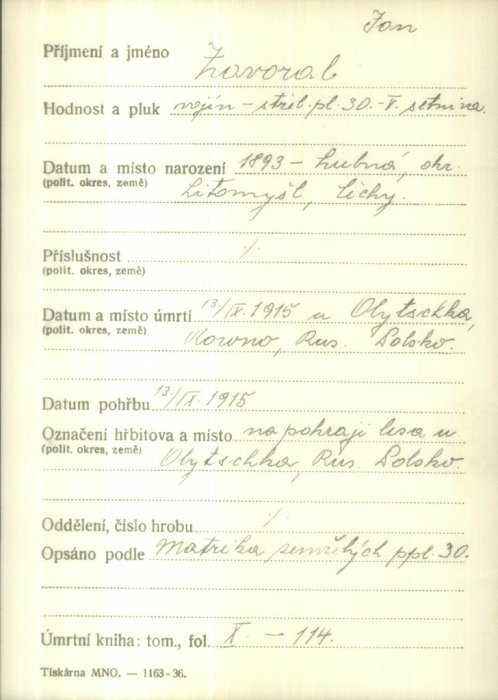 Jan
Příjmení a jméno Zavoral
Hodnost a pluk vojín – střel. pl. 30. – V. setnina.
Datum a místo narození 1893 – Lubná, okr.
(polit. okres, země) Litomyšl, Čechy.
Příslušnost ⁒
(polit. okres, země)
Datum a místo úmrtí 13/IX. 1915 u Olytschka,
(polit. okres, země) Rowno, Rus. Polsko.
Datum pohřbu 13/IX. 1915
Označení hřbitova a místo na pokraji lesa u
(polit. okres, země) Olytschka, Rus. Polsko.
Oddělení, číslo hrobu ⁒
Opsáno podle Matrika zemřelých ppl. 30.
Úmrtní kniha: tom., fol. X. – 114.
Tiskárna MNO. — 1163-36.